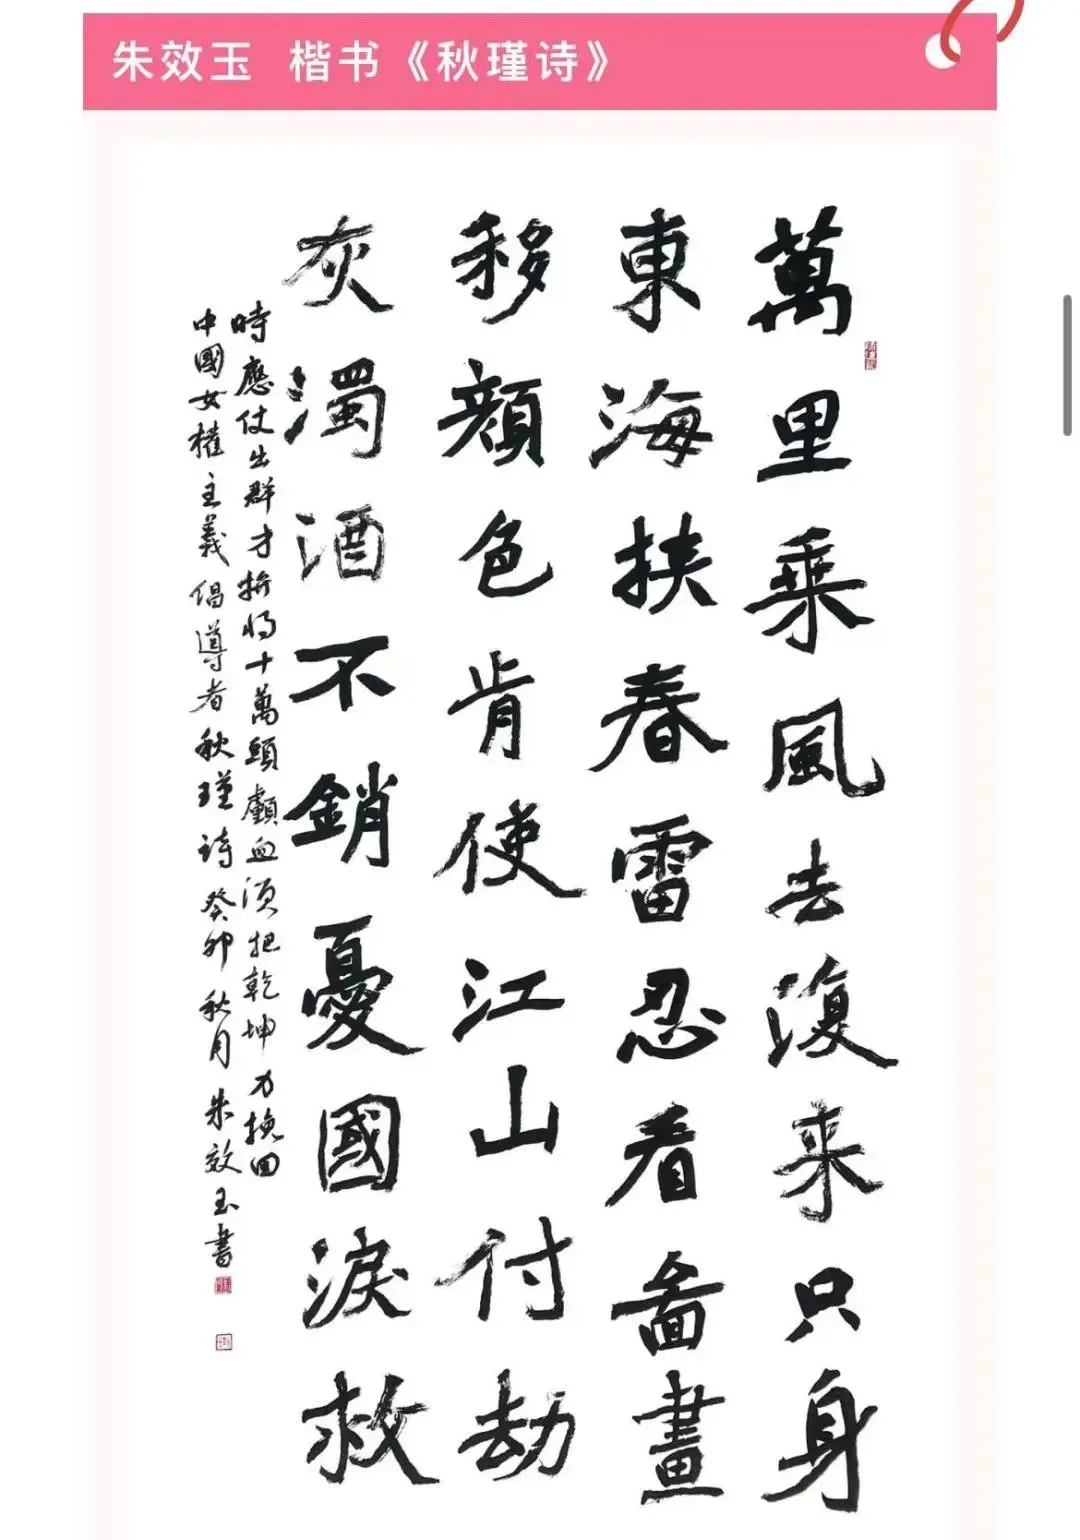 朱效玉 楷书《秋瑾诗》
萬里乘風去復来只身
東海挟春雷忍看啚畫
移顔色肯使江山付劫
灰濁酒不銷憂國淚救
時應仗出群才拚將十萬頭顱血須把乾坤力挽回
中國女權主義倡導者秋瑾詩癸卯秋月朱效玉書